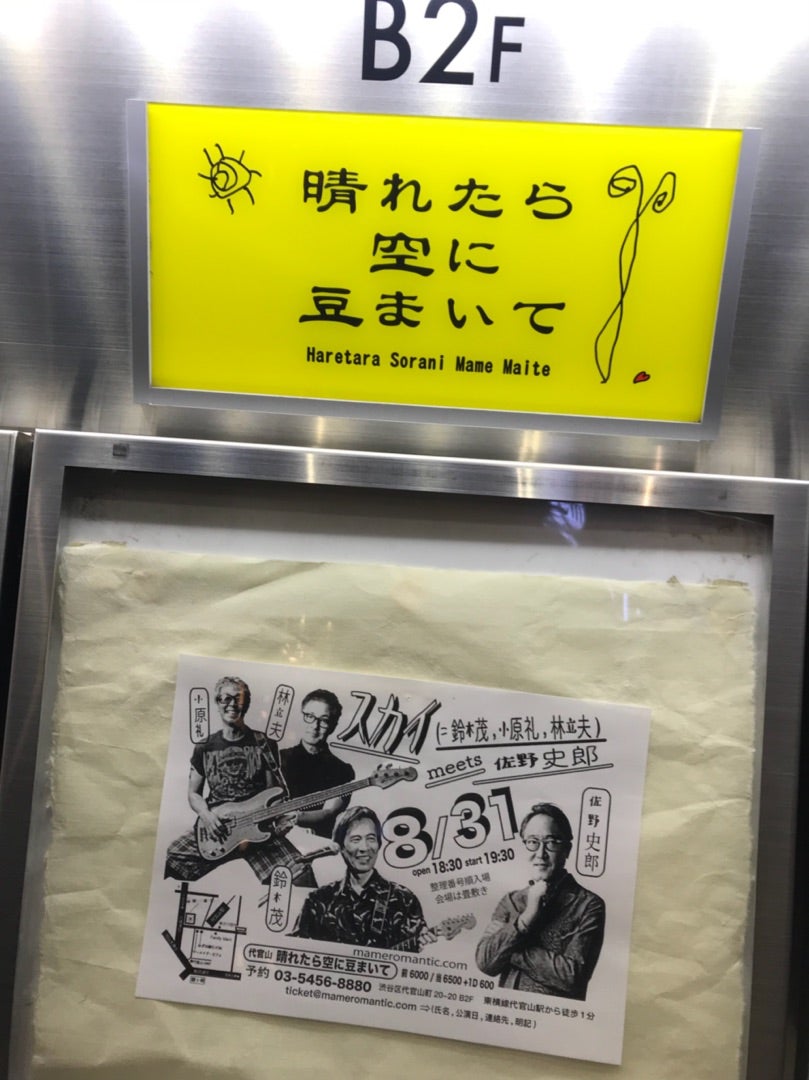 B2F
晴れたら
空に
豆まいて
Haretara Sorani Mame Maite
小原礼
林立夫
スカイ(=鈴木茂,小原礼,林立夫)
meets 佐野史郎
8/31
open 18:30 start 19:30
整理番号順入場
会場は畳敷き
佐野史郎
鈴木茂
mameromantic.com
代官山 晴れたら空に豆まいて 前6000/当6500+1D 600
予約 03-5456-8880 渋谷区代官山町20-20 B2F 東横線代官山駅から徒歩1分
ticket@mameromantic.com ⇒(氏名,公演日,連絡先,明記)